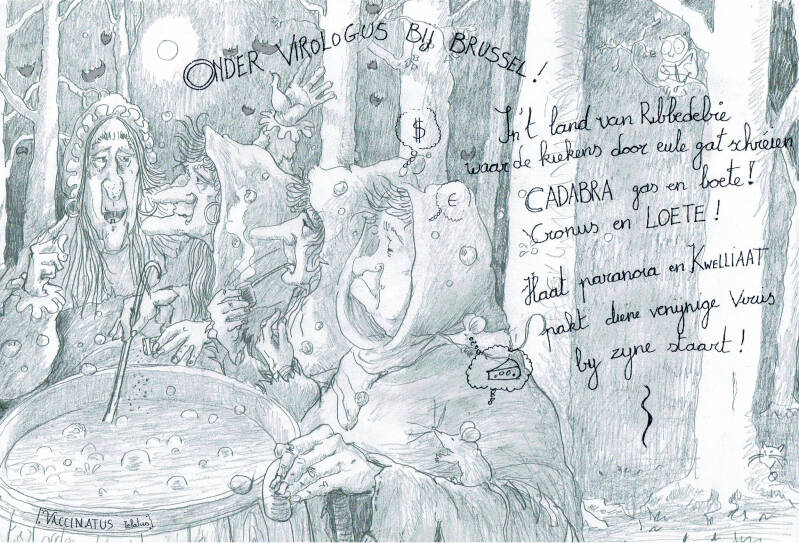 ONDER VIROLOGUS BIJ BRUSSEL!
$
€
In 't land van Ribbedebie
waar de kiekens door eule gat schreien
CADABRA gas en boete!
Cronus en LOETE!
Haat paranoia en KWELLIAAT
pakt diene venynige Virus
by zyne staart!
VACCINATUS